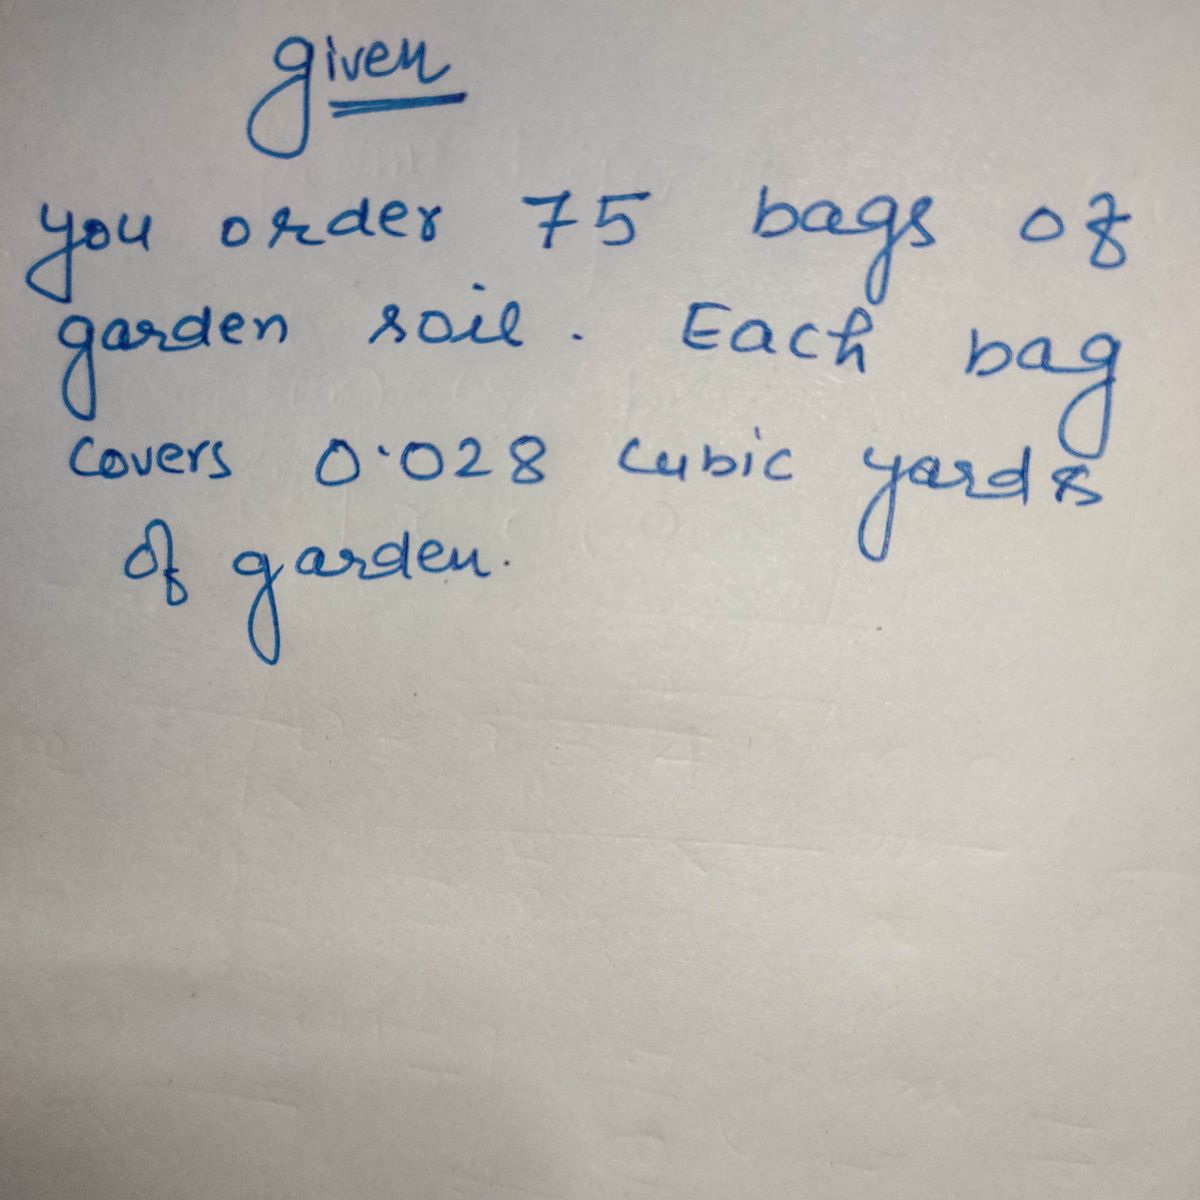 given
you order 75 bags of
garden soil. Each bag
covers 0.028 cubic yards
of garden.